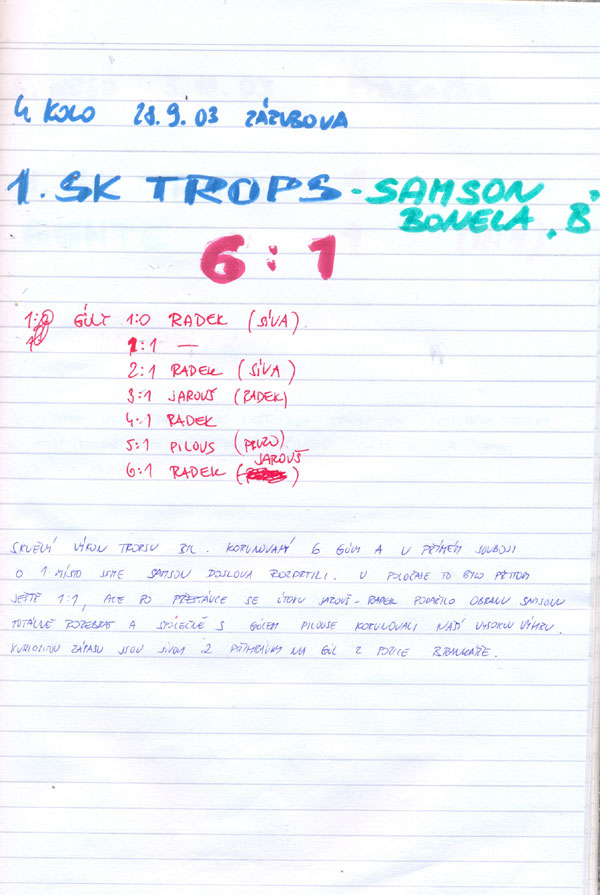 4. KOLO 28.9.03 ZÁZVBOVA
1. SK TROPS - SAMSON
BONELA „B"
6:1
GÓLY 1:0 RADEK (SÍVA)
1:1 —
2:1 RADEK (SÍVA)
3:1 JAROUŠ (RADEK)
4:1 RADEK
5:1 PILOUS
6:1 RADEK (JAROUŠ)
SKVĚLÝ VÝKON TROPSU BYL KORUNOVANÝ 6 GÓLY A V PŘÍMÉM SOUBOJI
O 1. MÍSTO JSME SAMSON DOSLOVA ROZDRTILI. V POLOČASE TO BYLO PŘITOM
JEŠTĚ 1:1, ALE PO PŘESTÁVCE SE ÚTOKU JAROUŠ-RADEK PODAŘILO OBRANU SAMSONU
TOTÁLNĚ ROZEBRAT A SPOLEČNĚ S GÓLEM PILOUSE KORUNOVALI NAŠÍ VYSOKOU VÝHRU.
KURIOZITOU ZÁPASU JSOU SÍVOVY 2 PŘIHRÁVKY NA GÓL Z POZICE BRANKÁŘE.